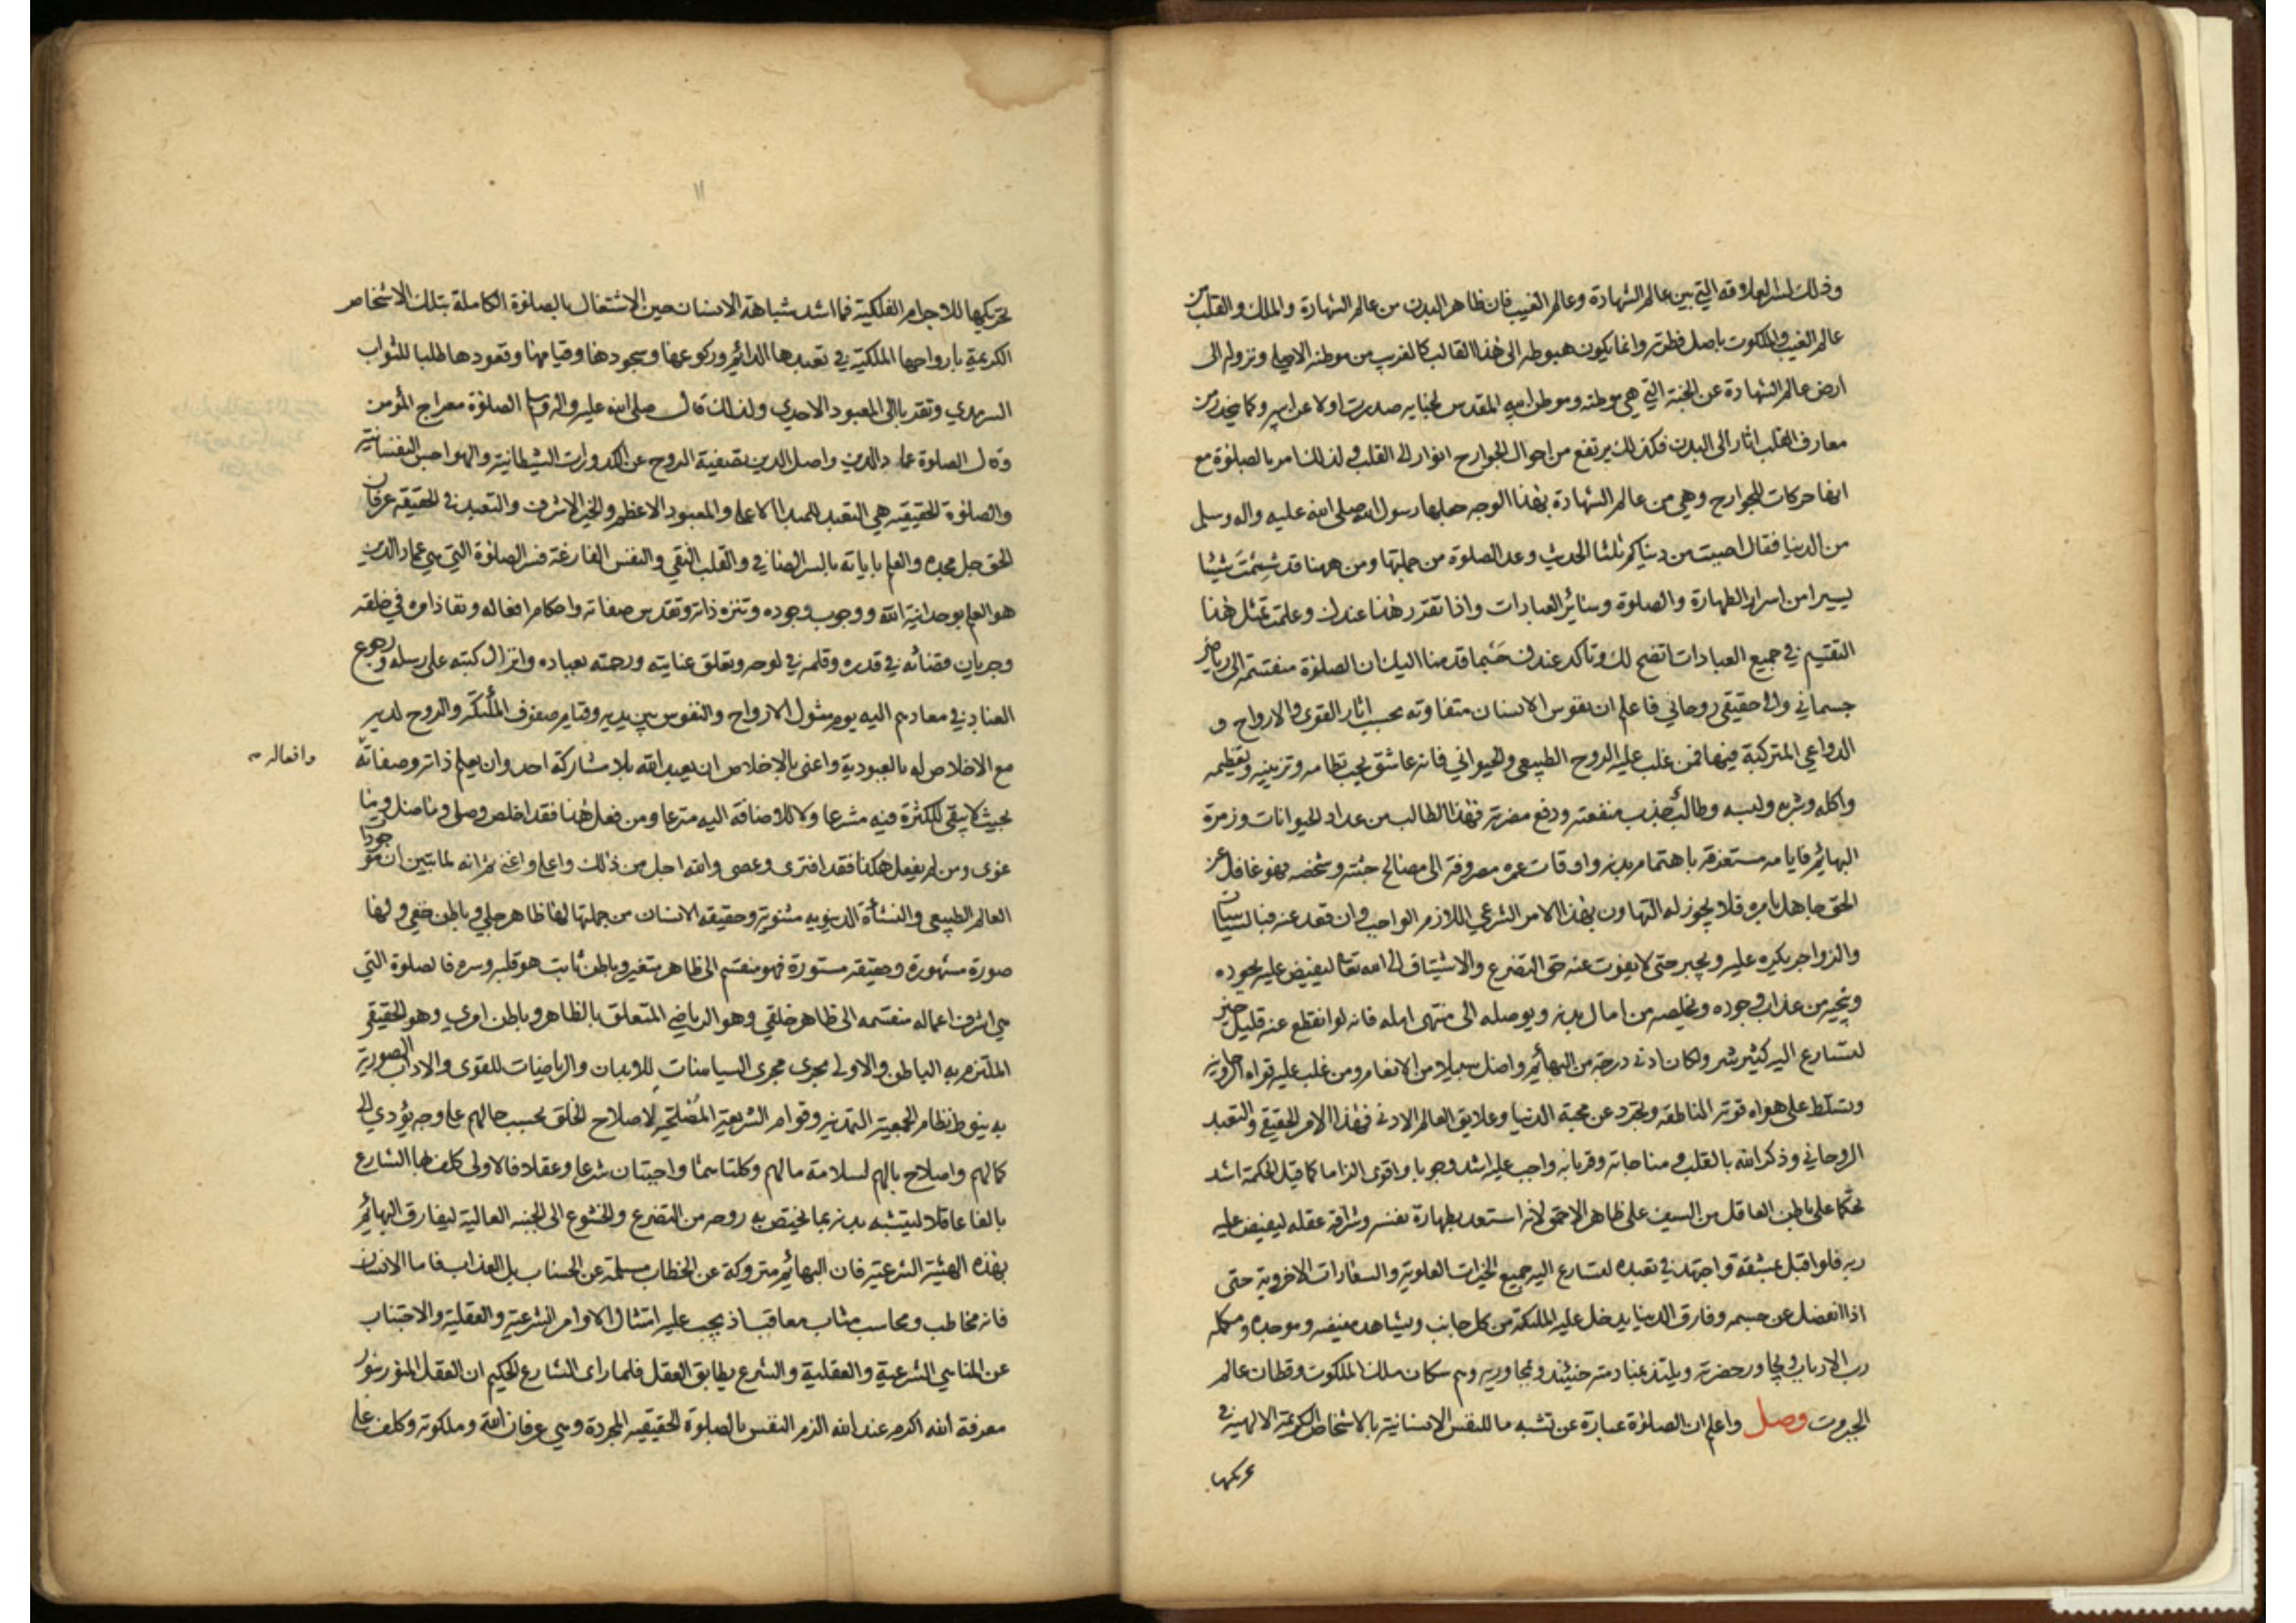 وذلك لسر العلاقة التي بين عالم الشهادة وعالم الغيب فان ظاهر البدن من عالم الشهادة والملك والقلب من
عالم الغيب والملكوت باصل فطرته وانما يكون هبوطه الى هذا القالب كالغريب من موطنه الاصلي ونزوله الى
ارض عالم الشهادة عن الجنة التي هي موطنه وموطن ابيه المقدس صدرت اولا عن وكما ينحدر من
معارف القلب اثار الى البدن فكذلك يرتفع من احوال الجوارح انوار الى القلب ولذلك امر بالصلوة مع
انها حركات للجوارح وهي من عالم الشهادة بهذا الوجه جعلها رسول الله صلى الله عليه واله وسلم
من الدنيا فقال احببت من دنياكم ثلثا الحديث وعد الصلوة من جملتها ومن ههنا قد شممت شيئا
يسيرا من اسرار الطهارة والصلوة وسائر العبادات واذا تقرر هذا عندك وعلمت تمثل هذا
التقسيم في جميع العبادات اتضح لك وتاكد عندك حسبما قدمنا اليك ان الصلوة منقسمة الى رياضي
جسماني والى حقيقي روحاني فاعلم ان نفوس الانسان متفاوته بحسب اثار القوى والارواح و
الدواعي المتركبة فيها فمن غلب عليه الروح الطبيعي والحيواني فانه عاشق يحب نظامه وتزيينه وتعظيمه
واكله وشربه ولبسه وطالب جذب منفعته ودفع مضرته فهذا الطالب من عداد الحيوانات وزمرة
البهائم فايامه مستغرقة باهتمام بدنه واوقات عمره مصروفة الى مصالح جثته وشخصه فهو غافل عن
الحق جاهل بامره فلا يجوز له التهاون بهذا الامر الشرعي اللازم الواجب وان قعد عنه فبالسياسات
والزواجر يكره عليه ويجبر حتى لا يفوت عنه حق التضرع والاشتياق الى الله تعالى ليفيض عليه بجوده
وينجيه من عذاب وجوده ويخلصه من امال بدنه ويوصله الى منتهى امله فانه لو انقطع عنه قليل خير
لتسارع اليه كثير شر ولكان ادنى درجة من البهائم واضل سبيلا من الانعام ومن غلب عليه قواه الروحانية
وتسلط على هواه قوته الناطقه وتجرد عن محبة الدنيا وعلايق العالم الادنى فهذا الامر الحقيقي والتعبد
الروحاني وذكر الله بالقلب ومناجاته وقربانه واجب عليه اشد وجوبا واقوى الزاما كما قيل الحكمة اشد
تحكما على باطن العاقل من السيف على ظاهر الاحمق لانه استعد بطهارة نفسه وشرافة عقله ليفيض عليه
ربه فلو اقبل بعشقه واجتهد في تعبده لتسارع اليه جميع الخيرات العلوية والسعادات الاخروية حتى
اذا انفصل عن جسمه وفارق الدنيا يدخل عليه الملئكة من كل جانب ويشاهد مفيضه وموجده ومكمله
رب الارباب ويجاور حضرته ويلتذ حينئذ ومجاوريه وهم سكان ملك الملكوت وقطان عالم
الجبروت وصل واعلم ان الصلوة عبارة عن تشبه ما للنفس الانسانية بالاشخاص الكريمة الالهية في
تحريكها
١١
تحريكها للاجرام الفلكية فما اشد شباهة الانسان حين الاشتغال بالصلوة الكاملة بتلك الاشخاص
الكريمة بارواحها الملكية في تعبدها الدائم وركوعها وسجودها وقيامها وقعودها طلبا للثواب
السرمدي وتقربا الى المعبود الاحدي ولذلك قال صلى الله عليه واله وسلم الصلوة معراج المؤمن
وقال الصلوة عماد الدين واصل الدين تصفية الروح عن الكدورات الشيطانية والهواجس النفسانية
والصلوة الحقيقيه هي التعبد للمبدا الاعلى والمعبود الاعظم والخير الاشرف والتعبد في الحقيقه عرفان
الحق جل مجده والعلم باياته بالسر الصافي والقلب النقي والنفس الفارغة فسر الصلوة التي هي عماد الدين
هو العلم بوحدانية الله ووجوب وجوده وتنزه ذاته وتقدس صفاته واحكام افعاله ونفاذ امره في خلقه
وجريان قضائه في قدره وقلمه في لوحه وتعلق عنايته ورحمته بعباده وانزال كتبه على رسله ورجوع
العباد في معادهم اليه يوم مثول الارواح والنفوس بين يديه وقيام صفوف الملئكة والروح لديه
مع الاخلاص له بالعبودية واعنى بالاخلاص ان يعبد الله بلا مشاركة احد وان يعلم ذاته وصفاته
وافعاله
بحيث لا يبقى للكثرة فيه مشرعا ولا للاضافة اليه مترعا ومن فعل هذا فقد اخلص وصلى وما ضل وما
غوى ومن لم يفعل هكذا فقد افترى وعصى والله اجل من ذلك واعلى واغنى ثم انه لما تبين ان موجودات
العالم الطبيعي والنشأة الدنيويه مثنوية وحقيقه الانسان من جملتها لها ظاهر جلي وباطن خفي ولها
صورة مشهورة وحقيقه مستورة فهو منقسم الى ظاهر متغير وباطن ثابت هو قلبه وسره فالصلوة التي
هي اشرف اعماله منقسمه الى ظاهر خلقي وهو الرياضي المتعلق بالظاهر وباطن امري وهو الحقيقي
الملتزم به الباطن والاولى يجرى مجرى السياسات للابدان والرياضيات للقوى والاداب الصورية
به ينوط نظام الجمعية التمدنية وقوام الشريعة لاصلاح الخلق بحسب حالهم على وجه يؤدي الى
كمالهم واصلاح بالهم لسلامة مالهم وكلتاهما واجبتان شرعا وعقلا فالاولى كلف بها الشارع
بالغا عاقلا ليتشبه بدنه بما يختص به روحه من التضرع والخشوع الى الجنبه العالية ليفارق البهائم
بهذه الهيئة الشرعية فان البهائم متروكة عن الخطاب مسلمة عن الحساب بل العذاب فاما الانسان
فانه مخاطب ومحاسب مثاب معاقب اذ يجب عليه امتثال الاوامر الشرعية والعقلية والاجتناب
عن المناهي الشرعية والعقلية والشرع يطابق العقل فلما راى الشارع الحكيم ان العقل المنور بنور
معرفة الله اكرم عند الله الزم النفس بالصلوة الحقيقيه المجردة وهي عرفان الله وملكوته وكلف على